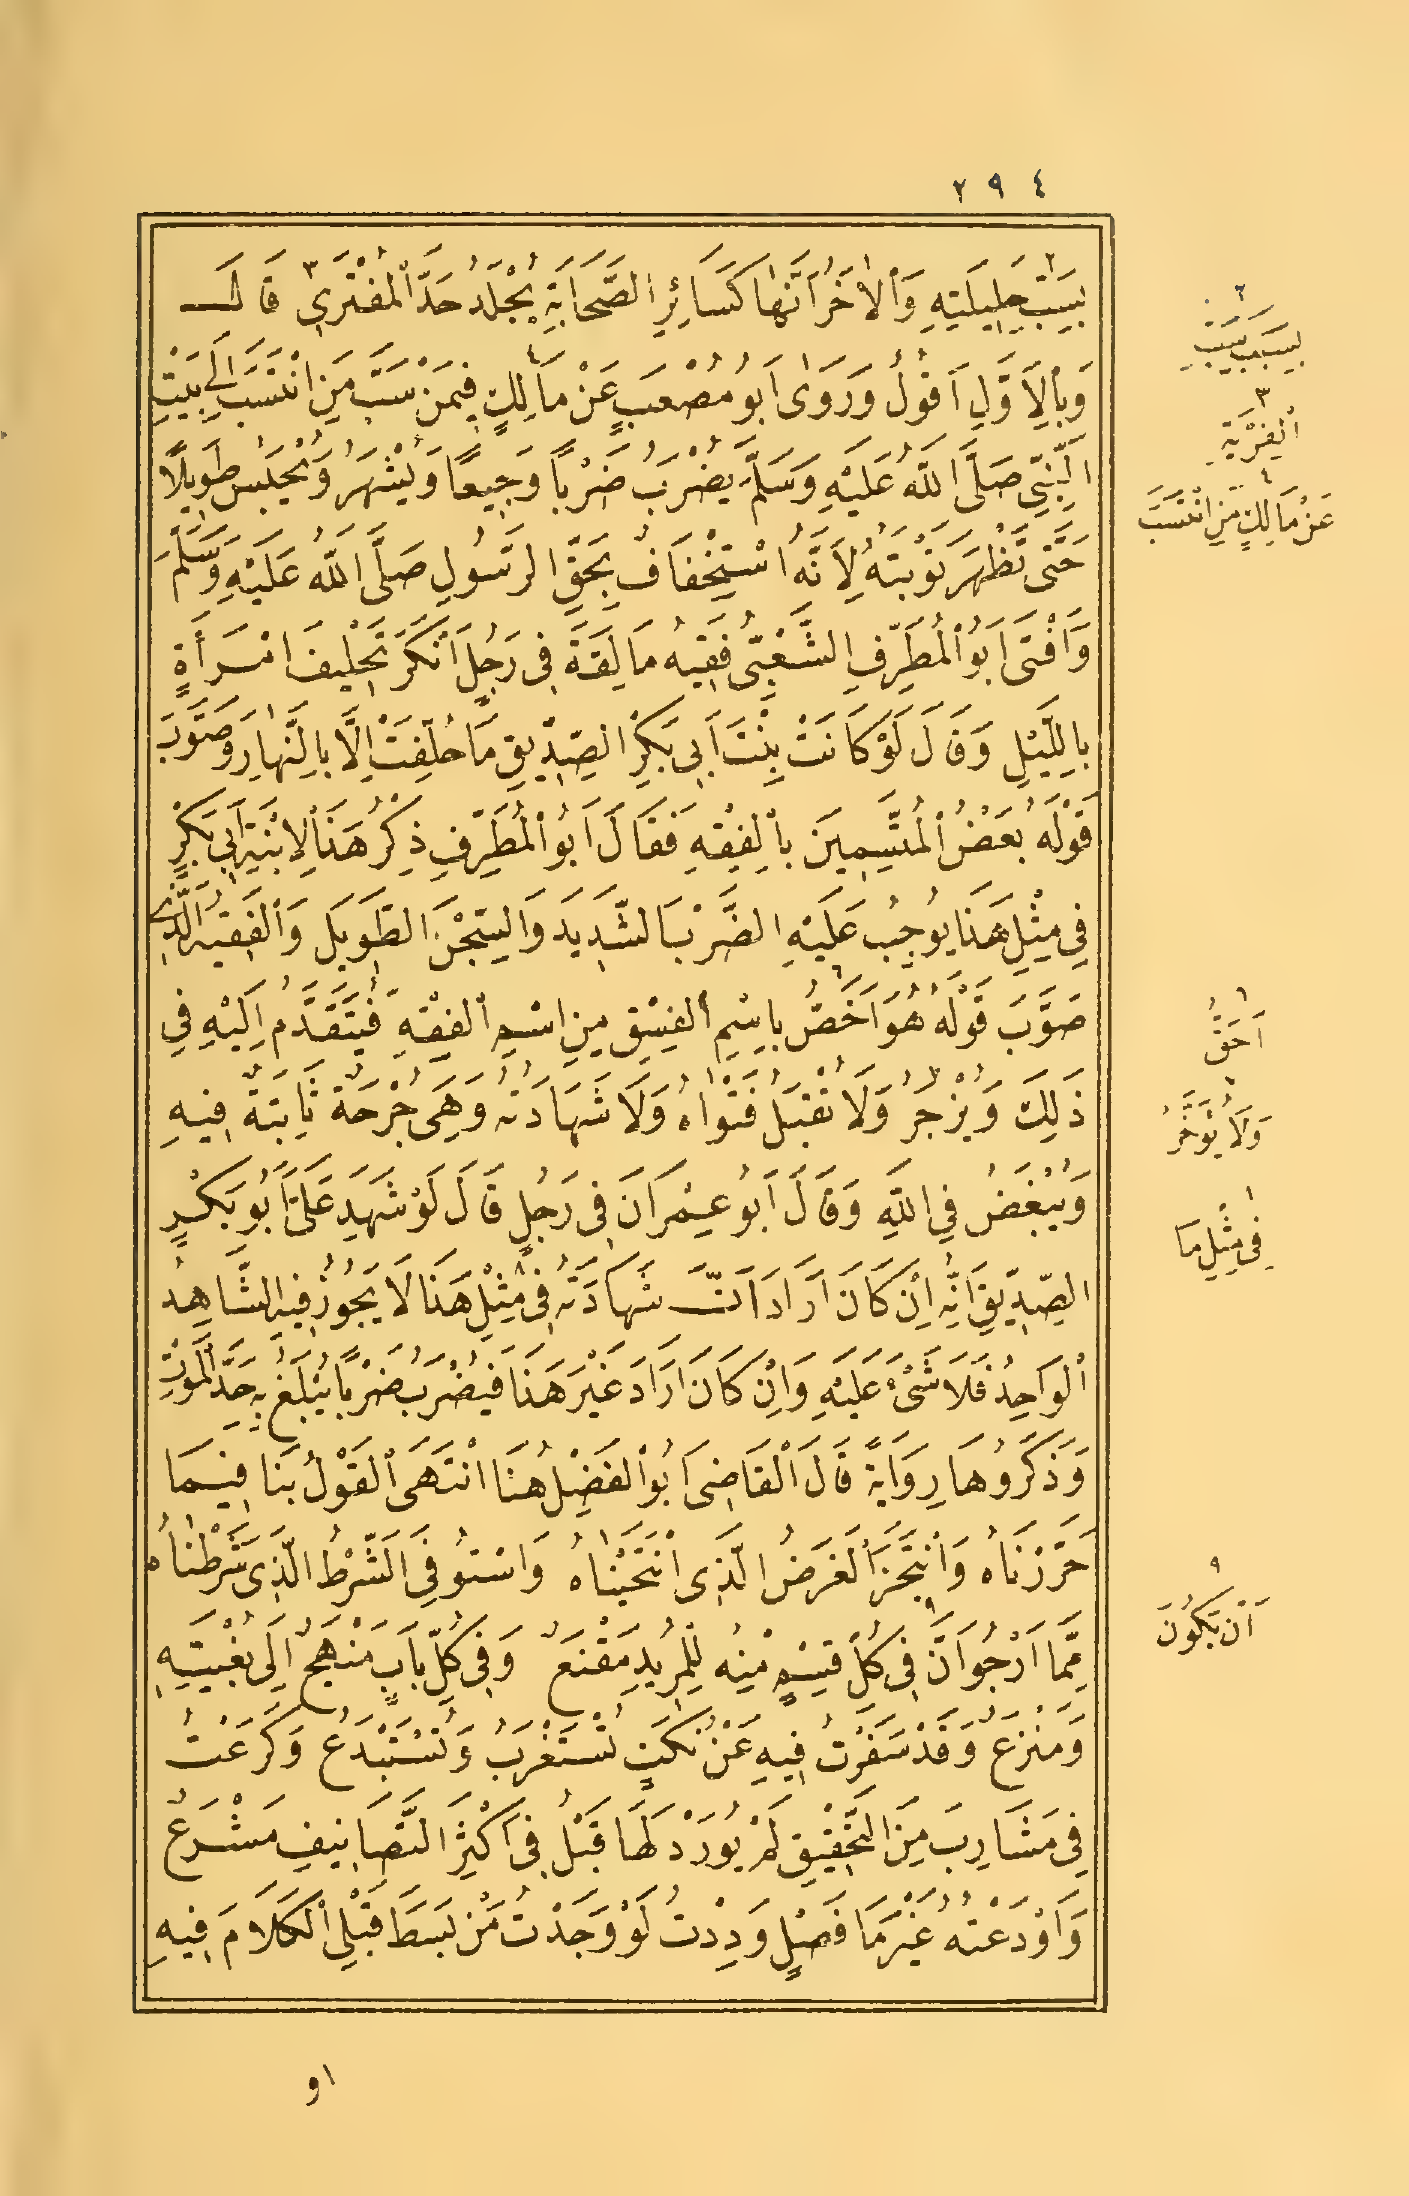 ٢٩٤
بِسَبِّ حَلِيلَتِهِ وَالْاٰخَرُ اَنَّهَا كَسَائِرِ الصَّحَابَةِ يُجْلَدُ حَدَّ الْمُفْتَرِى ٣ قَالَ
وَبِالْاَوَّلِ اَقُولُ وَرَوٰى اَبُو مُصْعَبٍ عَنْ مَالِكٍ ٤ فِيمَنْ سَبَّ مَنِ انْتَسَبَ اِلٰى بَيْتِ
النَّبِىِّ صَلَّى اللّٰهُ عَلَيْهِ وَسَلَّمَ يُضْرَبُ ضَرْبًا وَجِيعًا وَيُشْهَرُ وَيُحْبَسُ طَوِيلًا
حَتّٰى تَظْهَرَ تَوْبَتُهُ لِاَنَّهُ اسْتِخْفَافٌ بِحَقِّ الرَّسُولِ صَلَّى اللّٰهُ عَلَيْهِ وَسَلَّمَ
وَاَفْتٰى اَبُو الْمُطَرِّفِ الشَّعْبِىُّ فَقِيهُ مَالَقَةَ فِى رَجُلٍ اَنْكَرَ تَحْلِيفَ امْرَأَةٍ
بِاللَّيْلِ وَقَالَ لَوْ كَانَتْ بِنْتَ اَبِى بَكْرٍ الصِّدِّيقِ مَا حُلِّفَتْ اِلَّا بِالنَّهَارِ وَصَوَّبَ
قَوْلَهُ بَعْضُ الْمُتَّسِمِينَ بِالْفِقْهِ فَقَالَ اَبُو الْمُطَرِّفِ ذِكْرُ هَذَا لِابْنَةِ اَبِى بَكْرٍ
فِى مِثْلِ هَذَا يُوجِبُ عَلَيْهِ الضَّرْبَ الشَّدِيدَ وَالسِّجْنَ الطَّوِيلَ وَالْفَقِيهُ الَّذِى
صَوَّبَ قَوْلَهُ هُوَ اَخَصُّ ٦ بِاسْمِ الْفِسْقِ مِنِ اسْمِ الْفِقْهِ فَيُتَقَدَّمُ اِلَيْهِ فِى
ذَلِكَ وَيُزْجَرُ وَلَا تُقْبَلُ فَتْوَاهُ وَلَا شَهَادَتُهُ وَهِىَ جُرْحَةٌ ثَابِتَةٌ فِيهِ
وَيُبْغَضُ فِى اللّٰهِ وَقَالَ اَبُو عِمْرَانَ فِى رَجُلٍ قَالَ لَوْ شَهِدَ عَلَىَّ اَبُو بَكْرٍ
الصِّدِّيقِ اَنَّهُ اِنْ كَانَ اَرَادَ اَنَّ شَهَادَتَهُ فِى مِثْلِ هَذَا لَا يَجُوزُ فِيهِ الشَّاهِدُ
الْوَاحِدُ فَلَا شَىْءَ عَلَيْهِ وَاِنْ كَانَ اَرَادَ غَيْرَ هَذَا فَيُضْرَبُ ضَرْبًا يَبْلُغُ بِهِ حَدَّ الْمَوْتِ
وَذَكَرُوهَا رِوَايَةً قَالَ الْقَاضِى اَبُو الْفَضْلِ هُنَا انْتَهَى الْقَوْلُ بِنَا فِيمَا
حَرَّرْنَاهُ وَانْتَجَزَ الْغَرَضُ الَّذِى انْتَحَيْنَاهُ وَاسْتُوفِىَ الشَّرْطُ الَّذِى شَرَطْنَاهُ
مِمَّا اَرْجُو اَنَّ ٩ فِى كُلِّ قِسْمٍ مِنْهُ لِلْمُرِيدِ مَقْنَعٌ وَفِى كُلِّ بَابٍ مَنْهَجٌ اِلٰى بُغْيَتِهِ
وَمَنْزَعٌ وَقَدْ سَفَرْتُ فِيهِ عَنْ نُكَتٍ تُسْتَغْرَبُ وَتُسْتَبْدَعُ وَكَرَعْتُ
فِى مَشَارِبَ مِنَ التَّحْقِيقِ لَمْ يُورَدْ لَهَا قَبْلُ فِى اَكْثَرِ التَّصَانِيفِ مَشْرَعٌ
وَاَوْدَعْتُهُ غَيْرَ مَا فَصْلٍ وَدِدْتُ لَوْ وَجَدْتُ مَنْ بَسَطَ قَبْلِى الْكَلَامَ فِيهِ
او
٢
بِسَبَبِ سَبِّ
٣
الْفِرْيَةِ
٤
عَنْ مَالِكٍ مَنِ انْتَسَبَ
٦
اَحَقُّ
وَلَا يُؤَخَّرُ
فِى مِثْلِ مَا
٩
اَنْ يَكُونَ